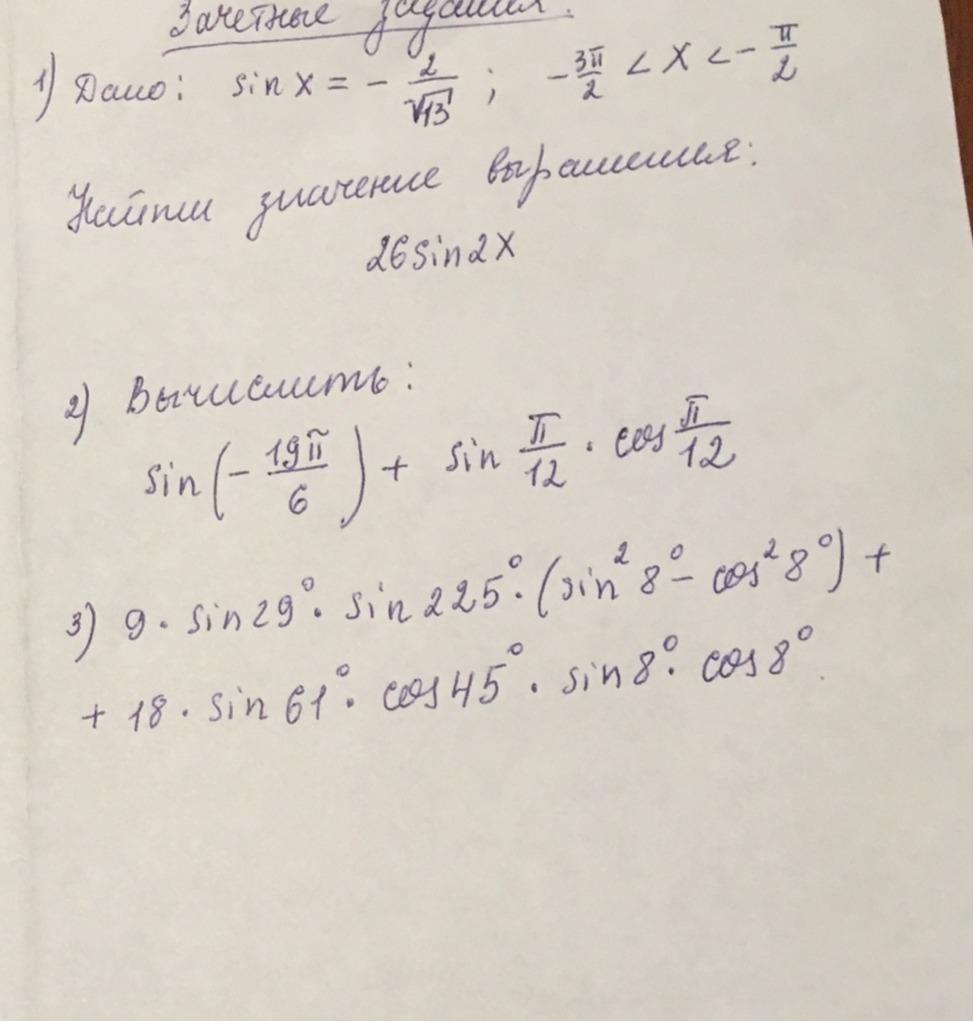 Зачетные задания.
1) Дано: sin x = - 2/√13 ; - 3π/2 < x < - π/2
Найти значение выражения:
26 sin 2x
2) Вычислить:
sin(- 19π/6) + sin π/12 · cos π/12
3) 9 · sin 29° · sin 225° · (sin² 8° - cos² 8°) +
+ 18 · sin 61° · cos 45° · sin 8° · cos 8°